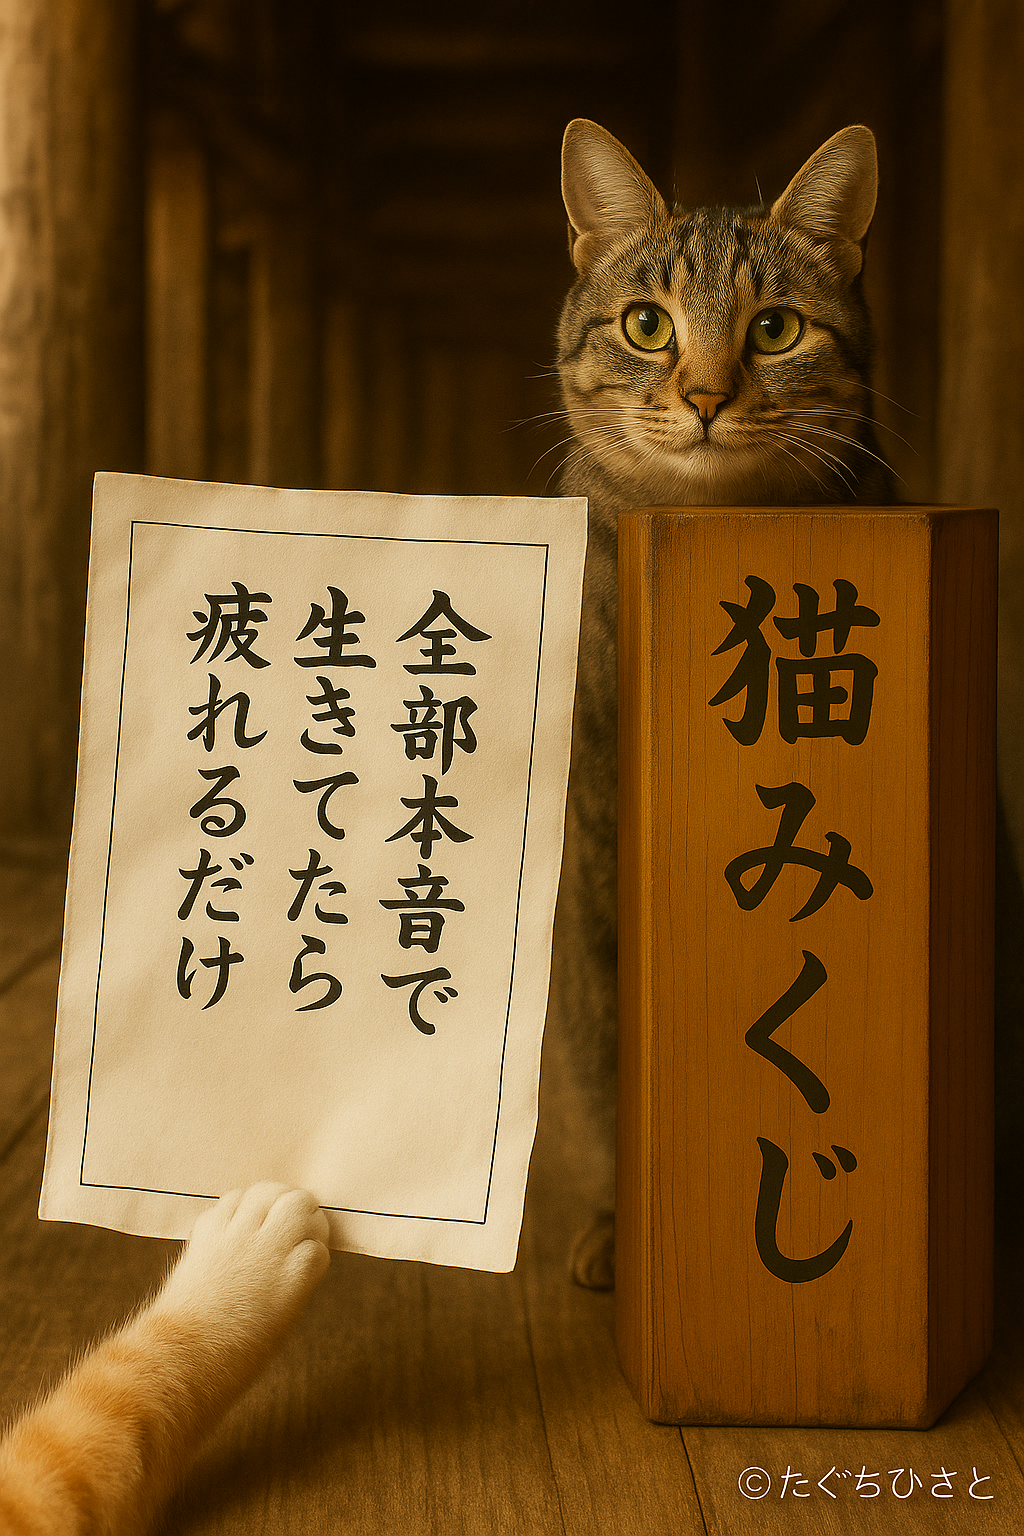 全部本音で
生きてたら
疲れるだけ
猫みくじ
©たぐちひさと